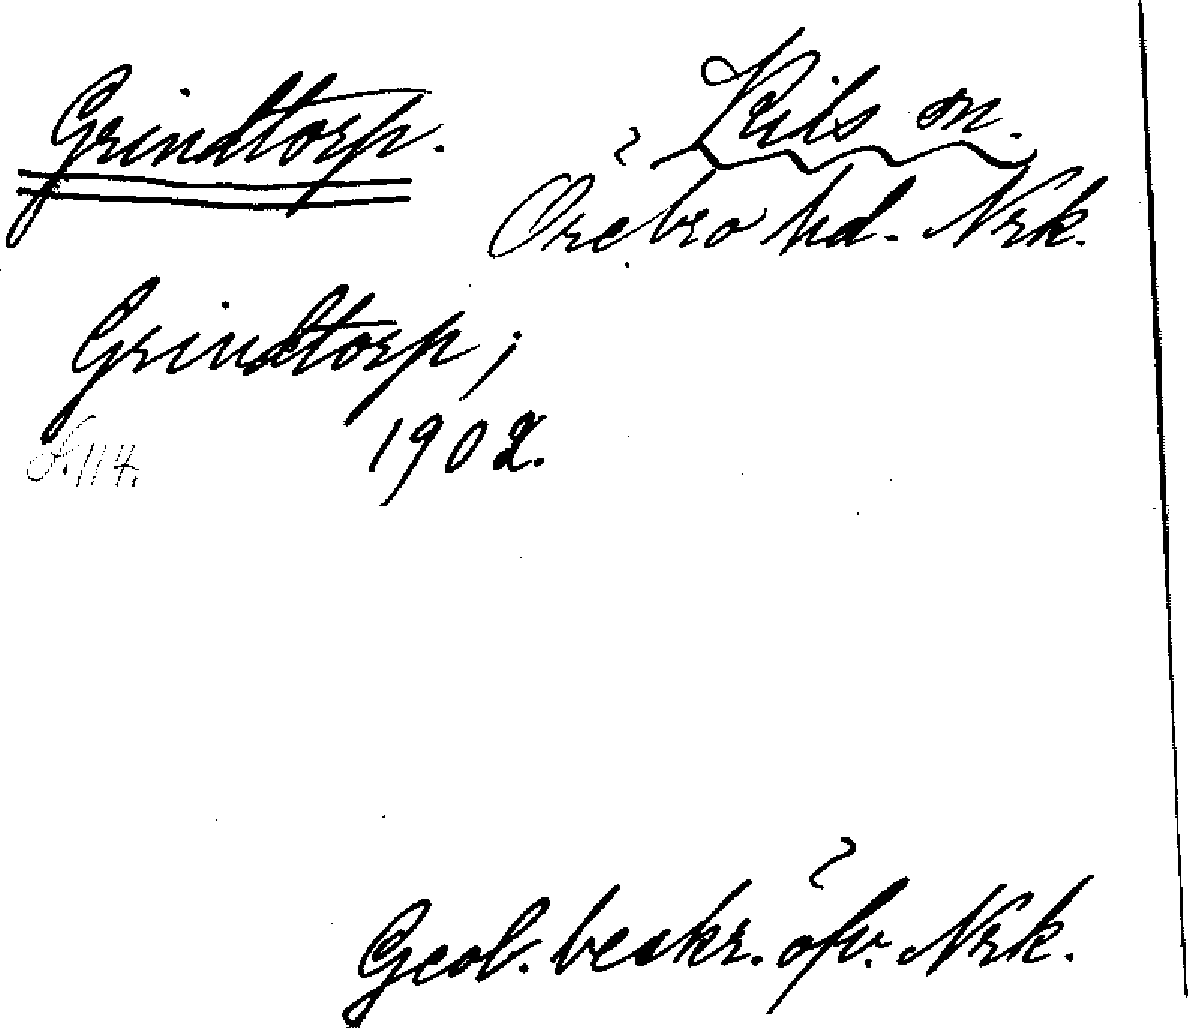 Grindtorp.
Kils sn.
Örebro hd. Nrk.
Grindtorp;
1902.
s. 114.
Geol. beskr. öfv. Nrk.